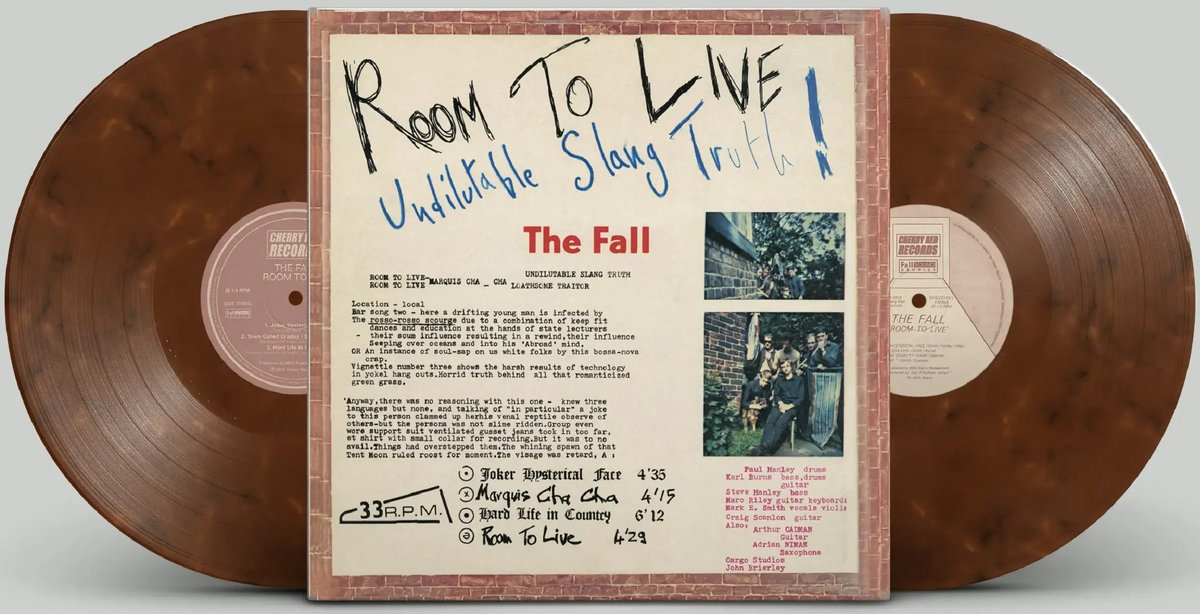 ROOM TO LIVE
Undilutable Slang Truth!
The Fall
UNDILUTABLE SLANG TRUTH
ROOM TO LIVE-MARQUIS CHA _ CHA
ROOM TO LIVE LOATHSOME TRAITOR
Location - local
Bar song two - here a drifting young man is infected by
The rosso-rosso scourge due to a combination of keep fit
dances and education at the hands of state lecturers
- their scum influence resulting in a rewind,their influence
Seeping over oceans and into his 'Abroad' mind.
OR An instance of soul-sap on us white folks by this bossa-nova
crap.
Vignettle number three shows the harsh results of technology
in yokel hang outs.Horrid truth behind all that romanticized
green grass.
'Anyway,there was no reasoning with this one - knew three
languages but none, and talking of "in particular" a joke
to this person clammed up herhis venal reptile observe of
others-but the persona was not slime ridden.Group even
wore support suit ventilated gusset jeans took in too far,
et shirt with small collar for recording.But it was to no
avail.Things had overstepped them.The whining spawn of that
Tent Moon ruled roost for moment.The visage was retard, A :
Joker Hysterical Face 4'35
Marquis Cha Cha 4'15
Hard Life in Country 6'12
Room To Live 4'29
33 R.P.M.
Paul Hanley drums
Karl Burns bass,drums
guitar
Steve Hanley bass
Marc Riley guitar keyboards
Mark E. Smith vocals violin
Craig Scanlon guitar
Also,
Arthur CADMAN
Guitar
Adrian NIMAN
Saxophone
Cargo Studios
John Brierley
CHERRY RED
RECORDS
THE FA
ROOM TO
33 1/3 RPM
SIDE THREE
1. Joker Hyster
2. Town Called Crappy
3. Hard Life In C
CHERRY RED
RECORDS
Fall SOUND
ARCHIVE
THE FALL
'ROOM TO LIVE'